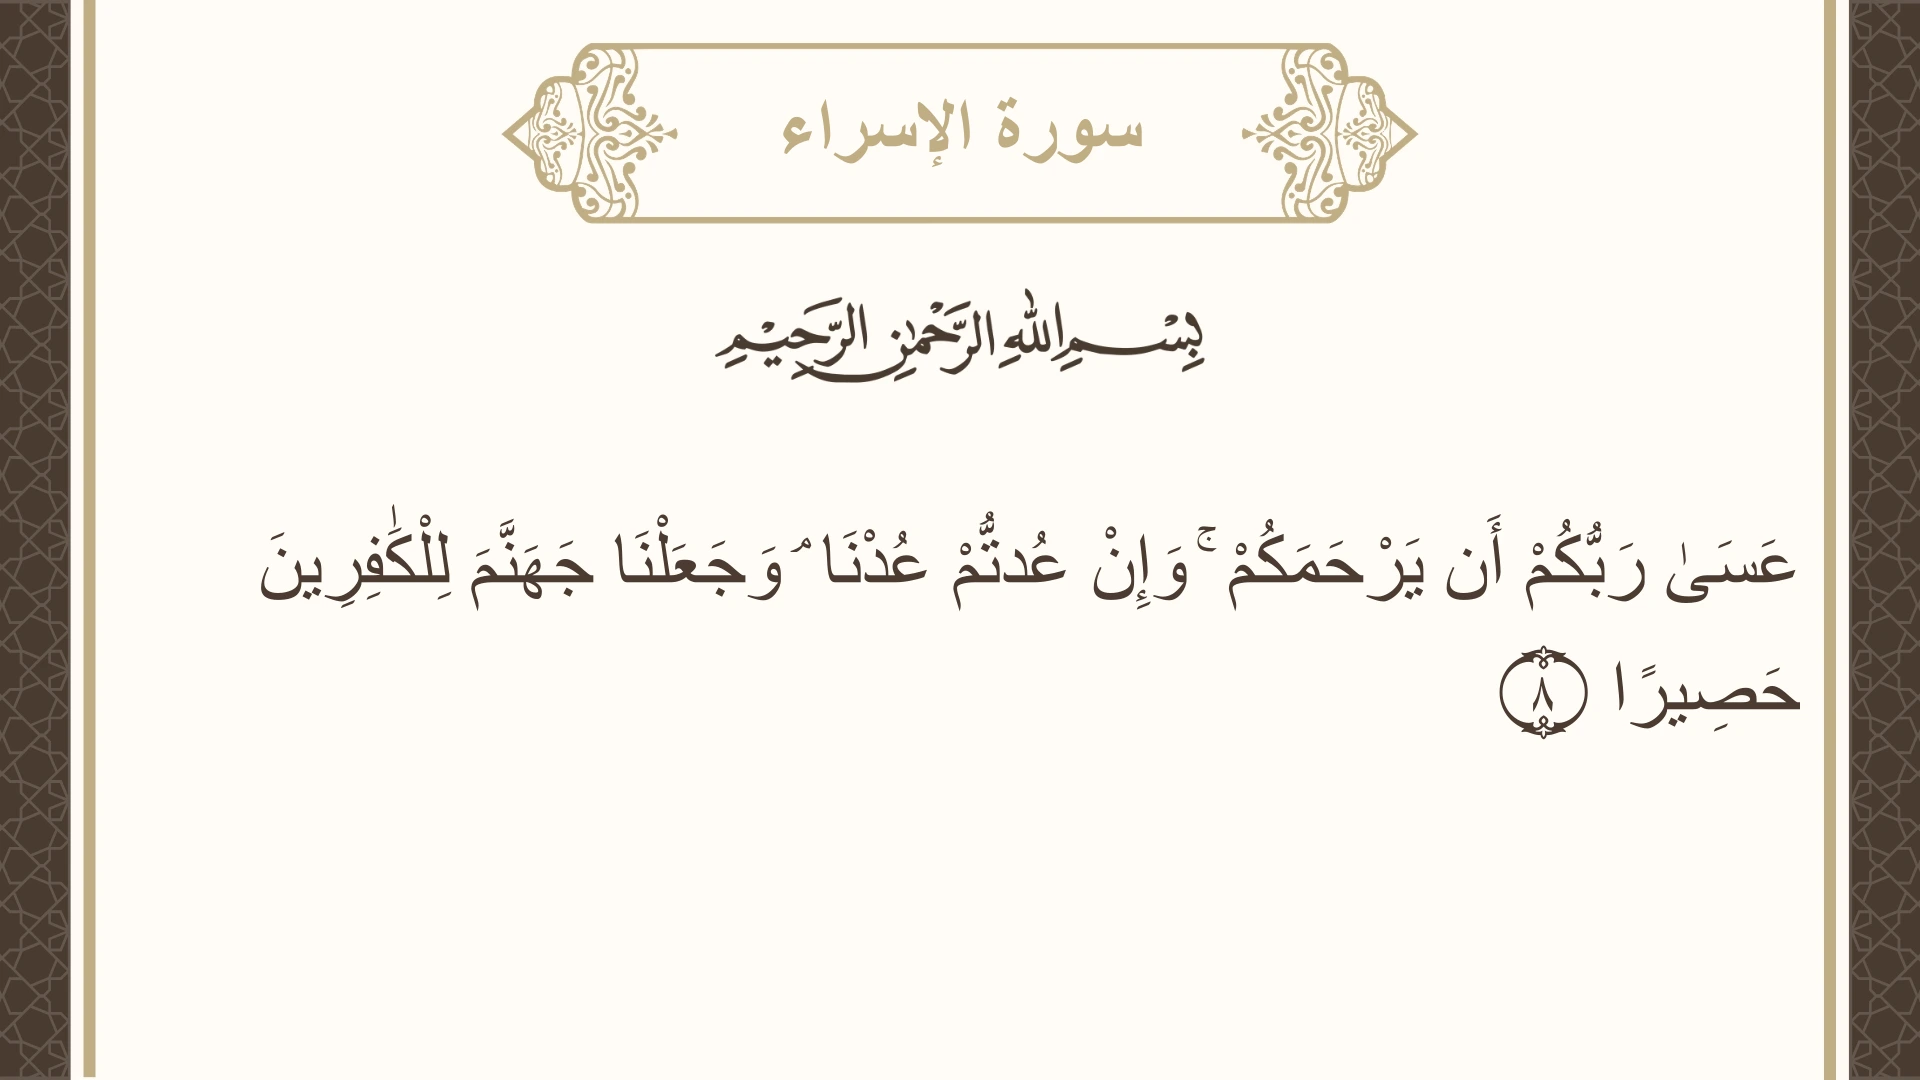 سورة الإسراء
بِسْمِ اللهِ الرَّحْمٰنِ الرَّحِيْمِ
عَسَىٰ رَبُّكُمْ أَن يَرْحَمَكُمْ ۚ وَإِنْ عُدتُّمْ عُدْنَا ۘ وَجَعَلْنَا جَهَنَّمَ لِلْكَٰفِرِينَ
حَصِيرًا ٨